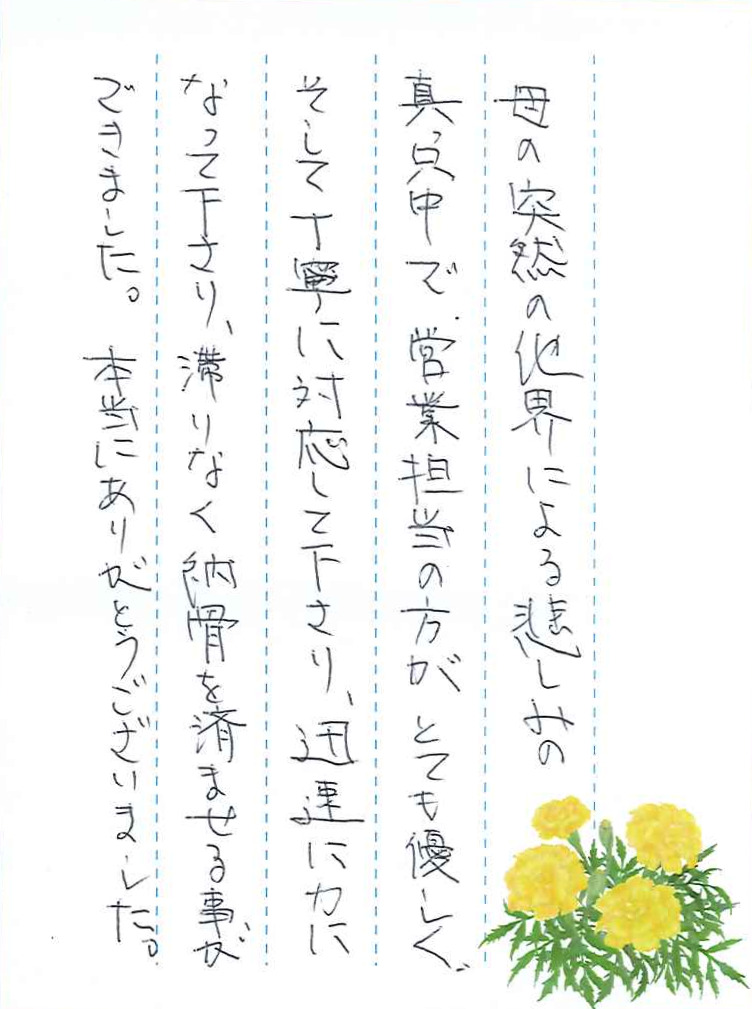 母の突然の他界による悲しみの
真只中で、営業担当の方がとても優しく、
そして丁寧に対応して下さり、迅速に力に
なって下さり、滞りなく納骨を済ませる事が
できました。 本当にありがとうございました。